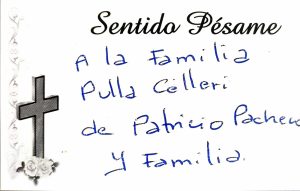 Sentido Pésame
A la Familia
Pulla Celleri
de Patricio Pacheco
y Familia.